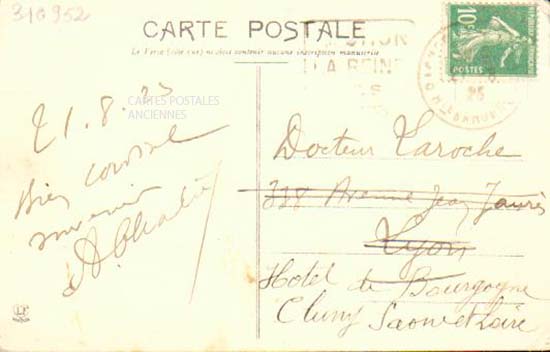 310952
CARTE POSTALE
Le Verso (côté vue) ne doit contenir aucune inscription manuscrite
LA REINE
10c
25
CARTES POSTALES
ANCIENNES
21.8.25
Bien cordial
souvenir
Docteur Laroche
338 Avenue Jean Jaurès
Lyon
Hotel de Bourgogne
Cluny Saone et Loire